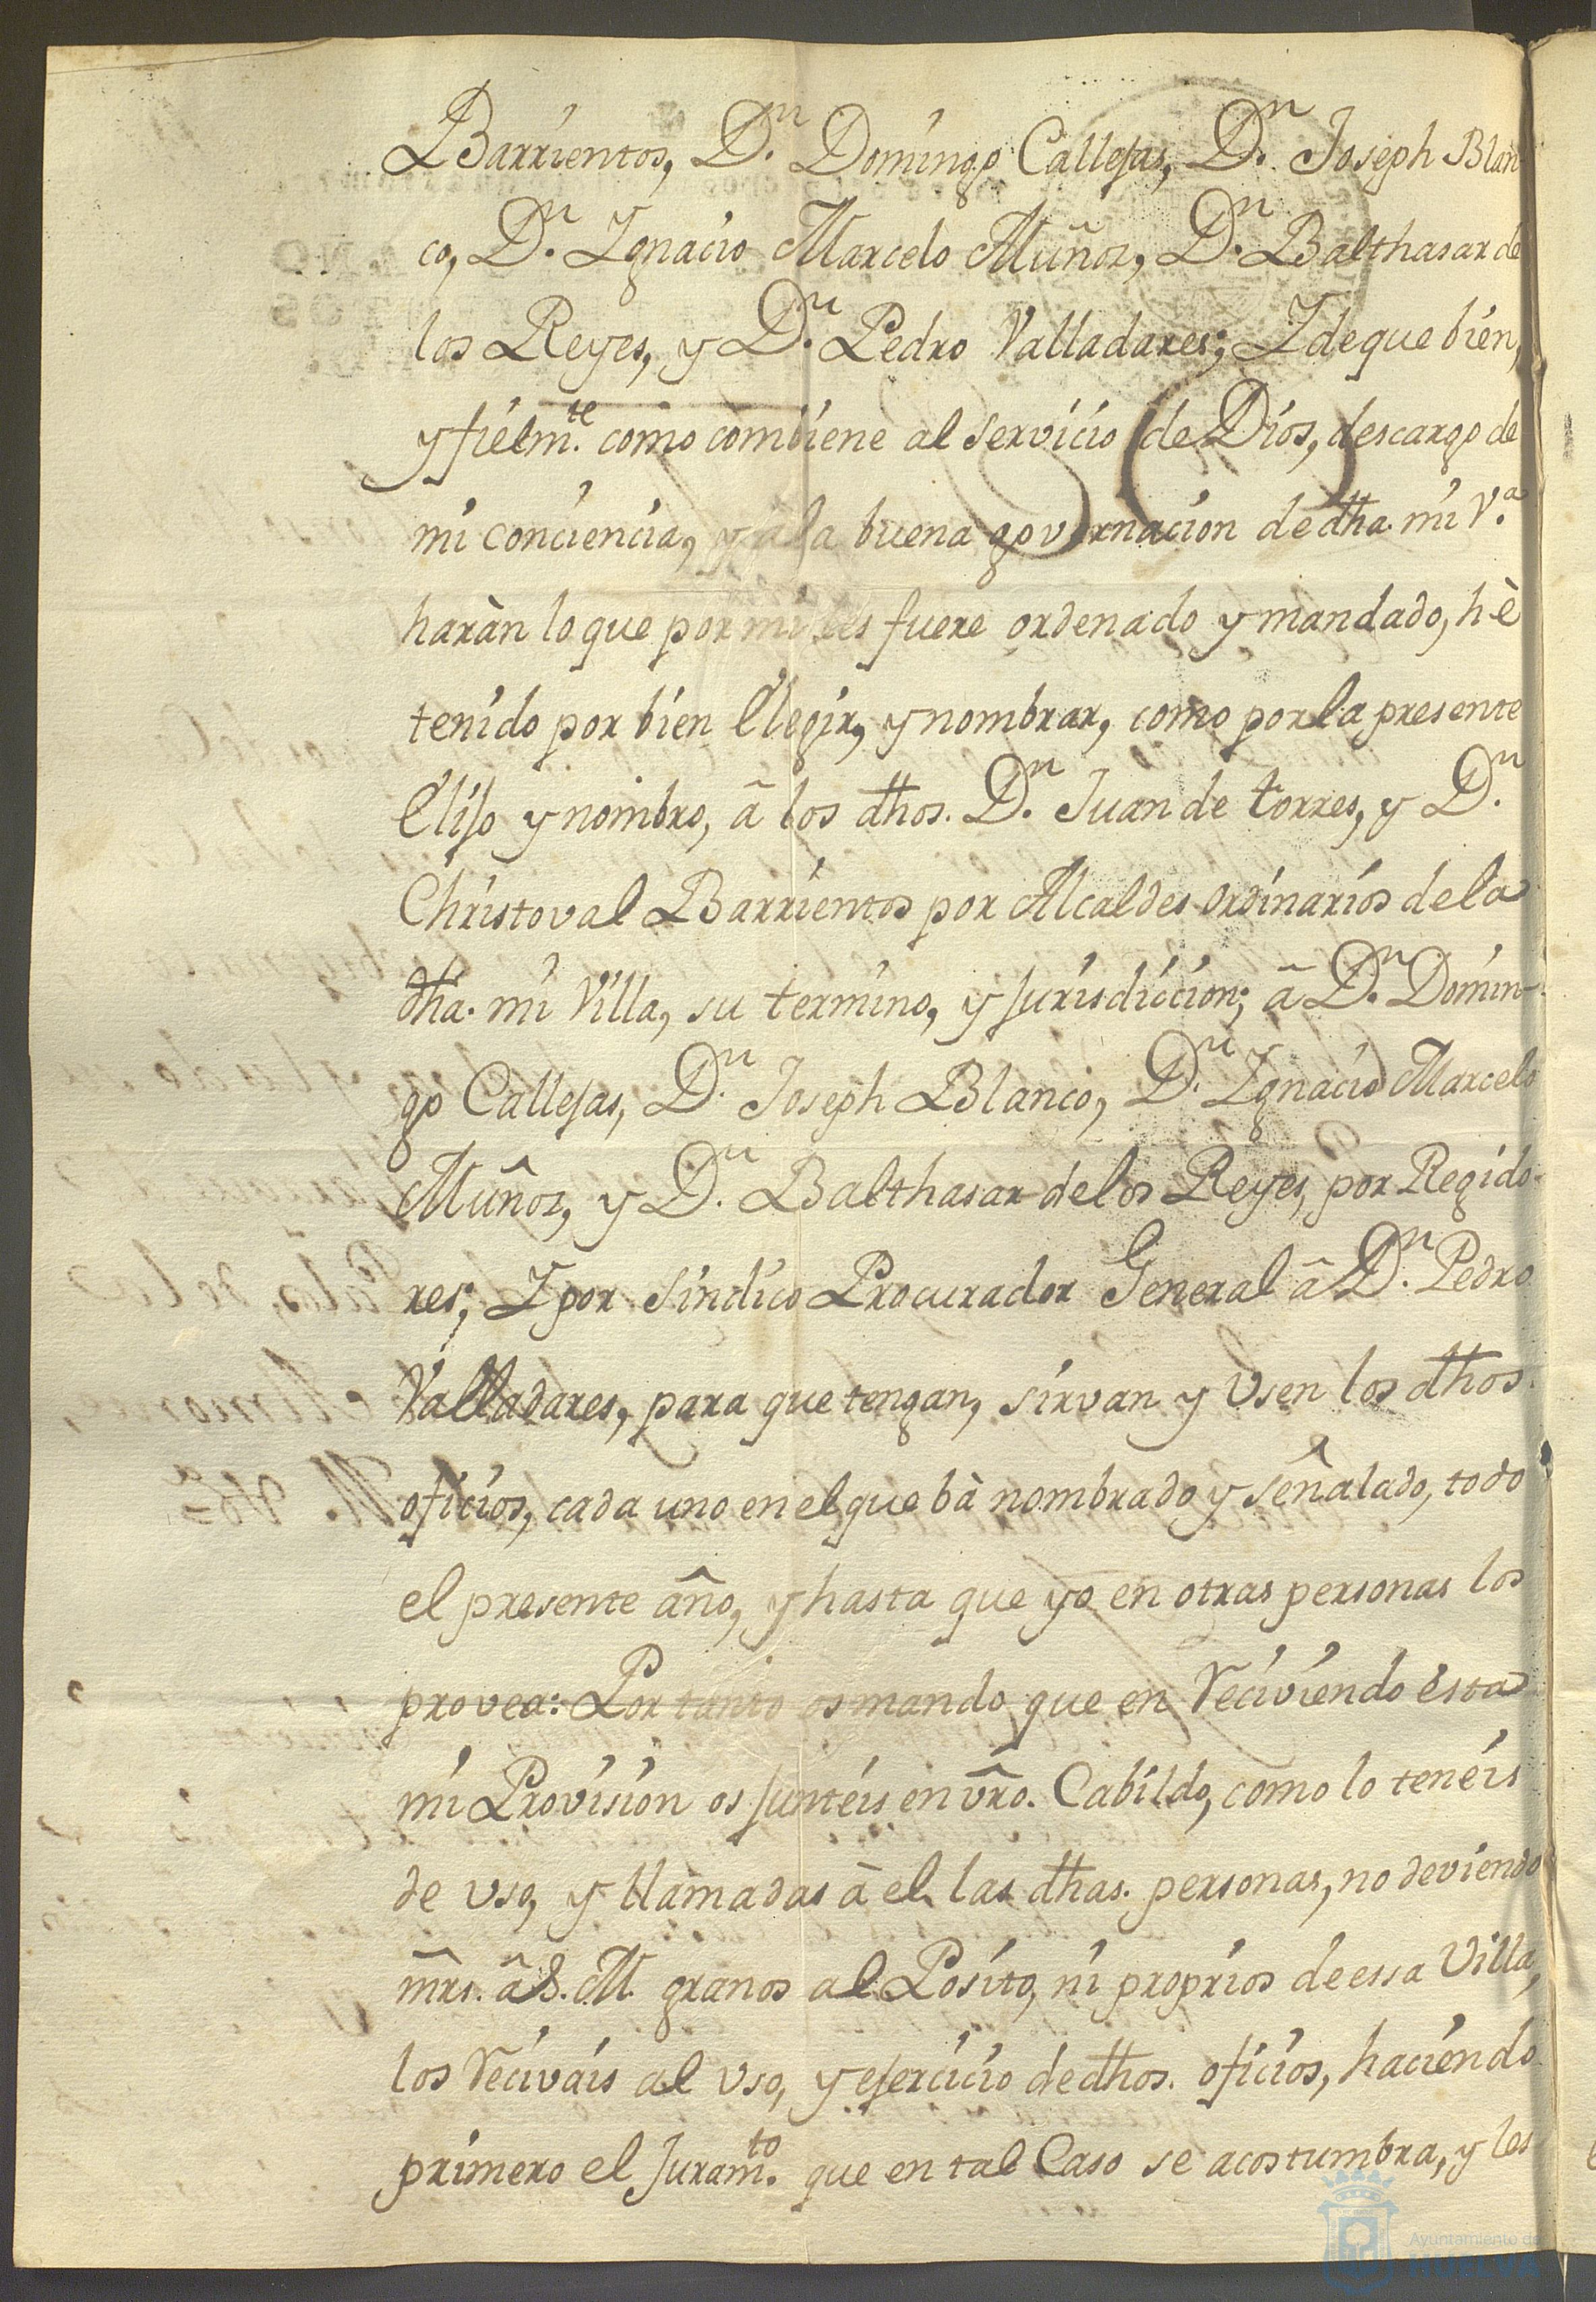 Barrientos, D.n Domingo Callejas, D.n Joseph Blan
co, D.n Ygnacio Marcelo Muñoz, D.n Balthasar de
los Reyes, y D.n Pedro Valladares; Y de que bien,
y fielm.te como combiene al servicio de Dios, descargo de
mi conciencia, y â la buena governacion de dha. mi V.a
haràn lo que por mi les fuere ordenado y mandado, hè
tenido por bien Elegir, y nombrar, como por la presente
Elijo y nombro, â los dhos. D.n Juan de torres, y D.n
Christoval Barrientos por Alcaldes ordinarios de la
dha. mi Villa, su termino, y jurisdiccion; â D.n Domin-
go Callejas, D.n Joseph Blanco, D.n Ygnacio Marcelo
Muñoz, y D.n Balthasar de los Reyes, por Regido-
res; Y por sindico Procurador General â D.n Pedro
Valladares, para que tengan, sirvan y Usen los dhos.
oficios, cada uno en el que bà nombrado y señalado, todo
el presente año, y hasta que yo en otras personas los
provea: Por tanto os mando que en reciviendo esta
mi Provision os junteis en vro. Cabildo, como lo teneis
de uso, y llamadas â el las dhas. personas, no deviendo
mrs. â S. M. granos al Posito, ni proprios de essa Villa,
los recivais al uso, y ejercicio de dhos. oficios, haciendo
primero el juram.to que en tal Caso se acostumbra, y les
Ayuntamiento de
HUELVA